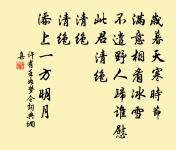 歲暮天寒時節
滿意相看冰雪
不遣野人歸誰慰
此君清絕
清絕
添上一方明月
許有壬如夢令詞典網
集